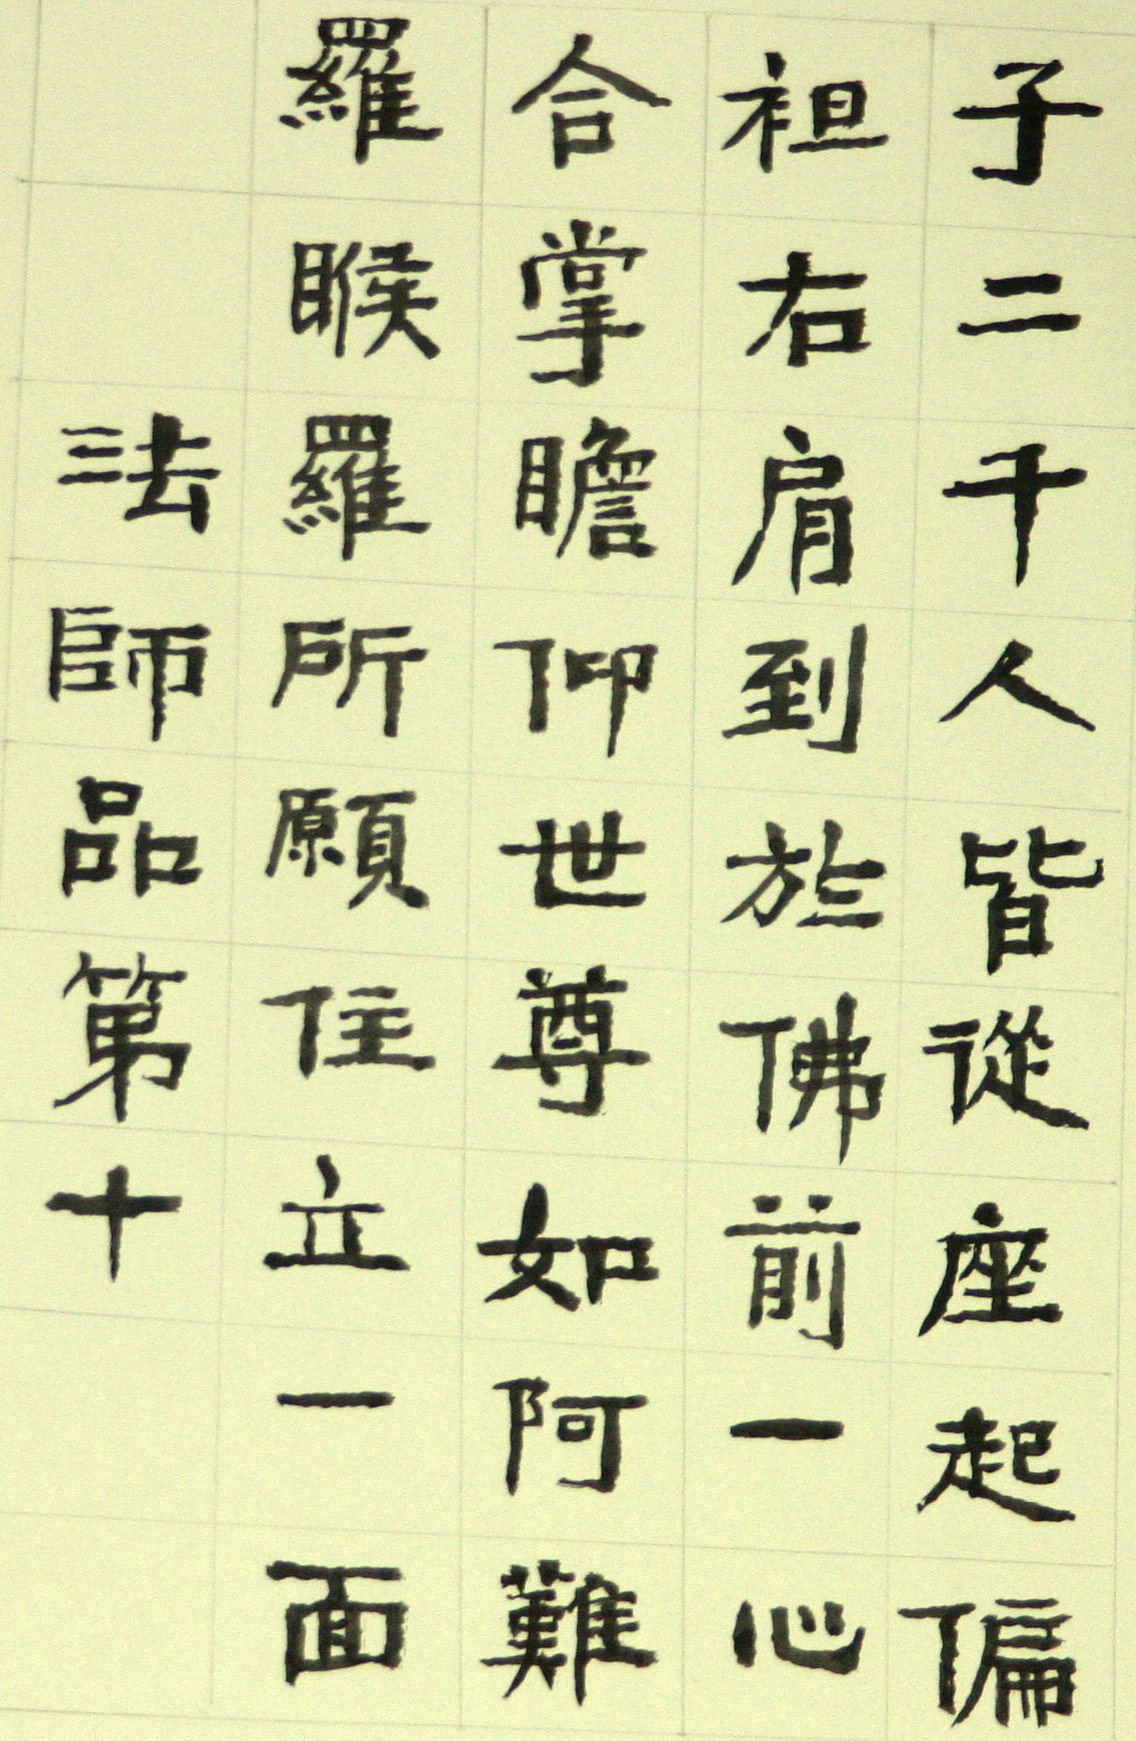 子二千人皆從座起偏
袒右肩到於佛前一心
合掌瞻仰世尊如阿難
羅睺羅所願住立一面
法師品第十